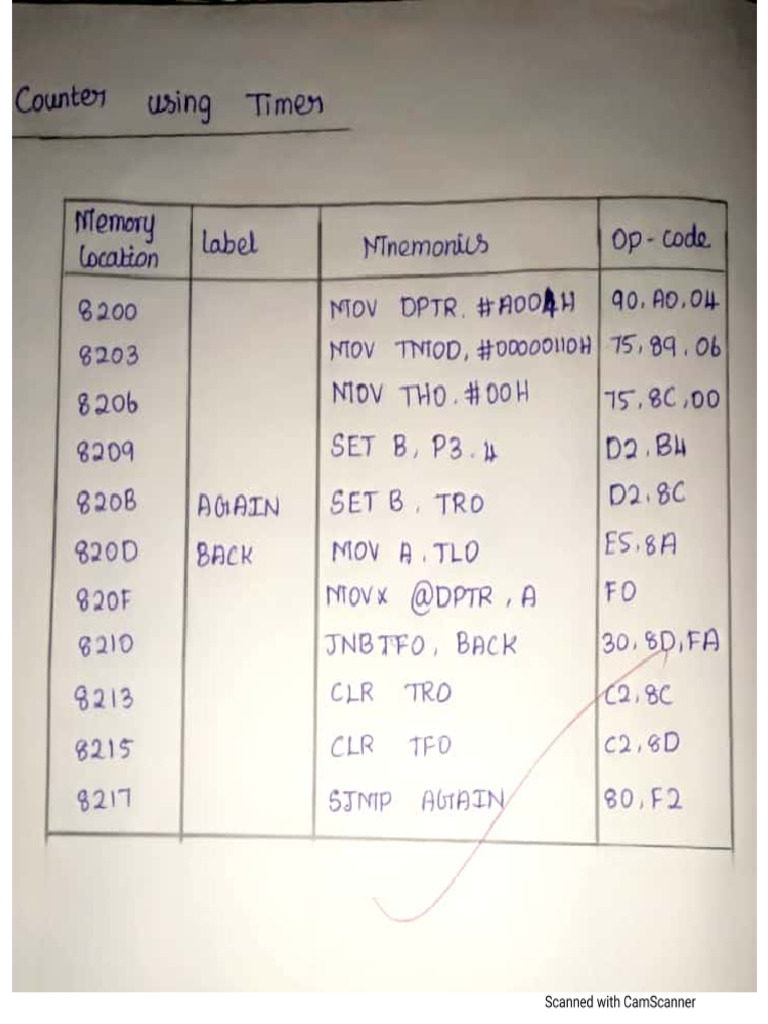 Counter using Timer
Memory location Label Mnemonics Op-code
8200 MOV DPTR, #A004H 90, A0, 04
8203 MOV TMOD, #00000110H 75, 89, 06
8206 MOV TH0, #00H 75, 8C, 00
8209 SET B, P3.4 D2, B4
820B AGAIN SET B, TR0 D2, 8C
820D BACK MOV A, TL0 E5, 8A
820F MOVX @DPTR, A F0
8210 JNB TF0, BACK 30, 8D, FA
8213 CLR TR0 C2, 8C
8215 CLR TF0 C2, 8D
8217 SJMP AGAIN 80, F2
Scanned with CamScanner